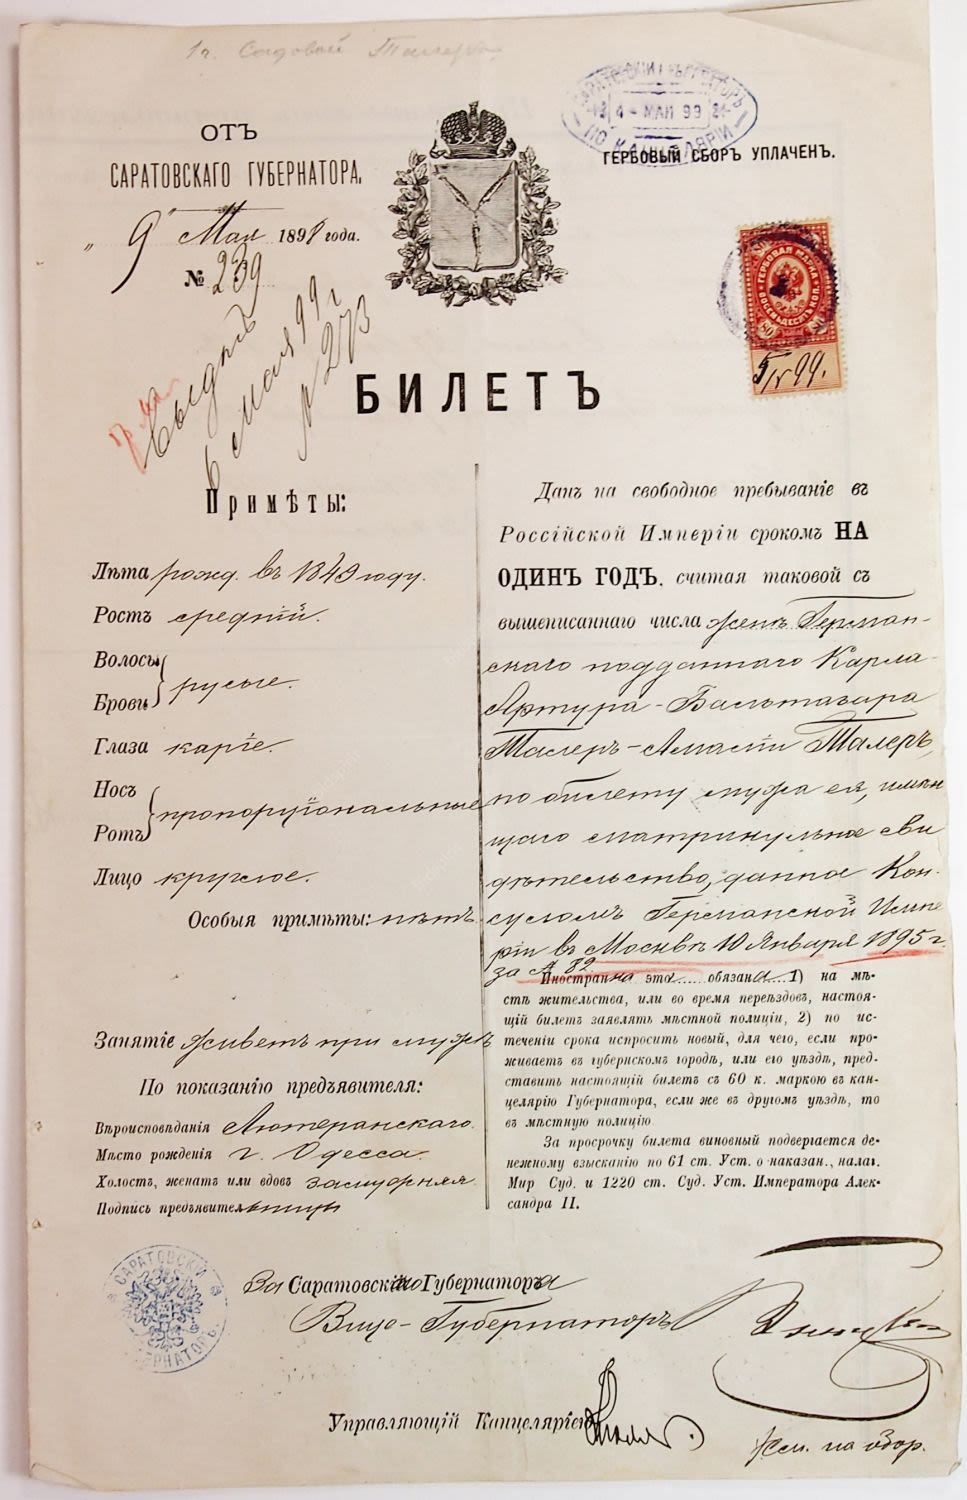 1 ч. Садовой Талеръ
ОТЪ
САРАТОВСКАГО ГУБЕРНАТОРА,
„9" Мая 1898 года.
№ 239
САРАТОВСКІЙ ГУБЕРНАТОРЪ
4 - МАЙ 99
ПО КАНЦЕЛЯРІИ
ГЕРБОВЫЙ СБОРЪ УПЛАЧЕНЪ.
ГЕРБОВАЯ МАРКА
ВОСЕМЬДЕСЯТЪ КОП.
80 80
5/V 99.
6 мая 99 г
№ 273
БИЛЕТЪ
Примѣты:
Лѣта рожд. въ 1849 году.
Ростъ средній.
Волосы
Брови
русые.
Глаза каріе.
Носъ
Ротъ
пропорціональные
Лицо круглое.
Особыя примѣты: нѣтъ
Занятіе живетъ при мужѣ
По показанію предъявителя:
Вѣроисповѣданія Лютеранскаго.
Мѣсто рожденія г. Одесса.
Холостъ, женатъ или вдовъ замужняя
Подпись предъявительницы
Данъ на свободное пребываніе въ
Россійской Имперіи срокомъ НА
ОДИНЪ ГОДЪ, считая таковой съ
вышеписаннаго числа женѣ Герман-
скаго подданнаго Карла-
Артура-Бальтазара
Талеръ-Амаліи Талеръ,
по билету мужа ея, имѣю
щаго матрикульное сви
дѣтельство, данное Кон-
суломъ Германской Импе
ріи въ Москвѣ 10 Января 1895 г.
за № 82
Иностранка эта обязана 1) на мѣ-
стѣ жительства, или во время переѣздовъ, настоя-
щій билетъ заявлять мѣстной полиціи, 2) по ис-
теченіи срока испросить новый, для чего, если про-
живаетъ въ губернскомъ городѣ, или его уѣздѣ, пред-
ставить настоящій билетъ съ 60 к. маркою въ кан-
целярію Губернатора, если же въ другомъ уѣздѣ, то
въ мѣстную полицію
За просрочку билета виновный подвергается де-
нежному взысканію по 61 ст. Уст. о наказан., налаг.
Мир Суд. и 1220 ст. Суд. Уст. Императора Алек-
сандра II.
САРАТОВСКІЙ
ГУБЕРНАТОРЪ
За Саратовскаго Губернатора
Вице-Губернаторъ
Управляющій Канцеляріею